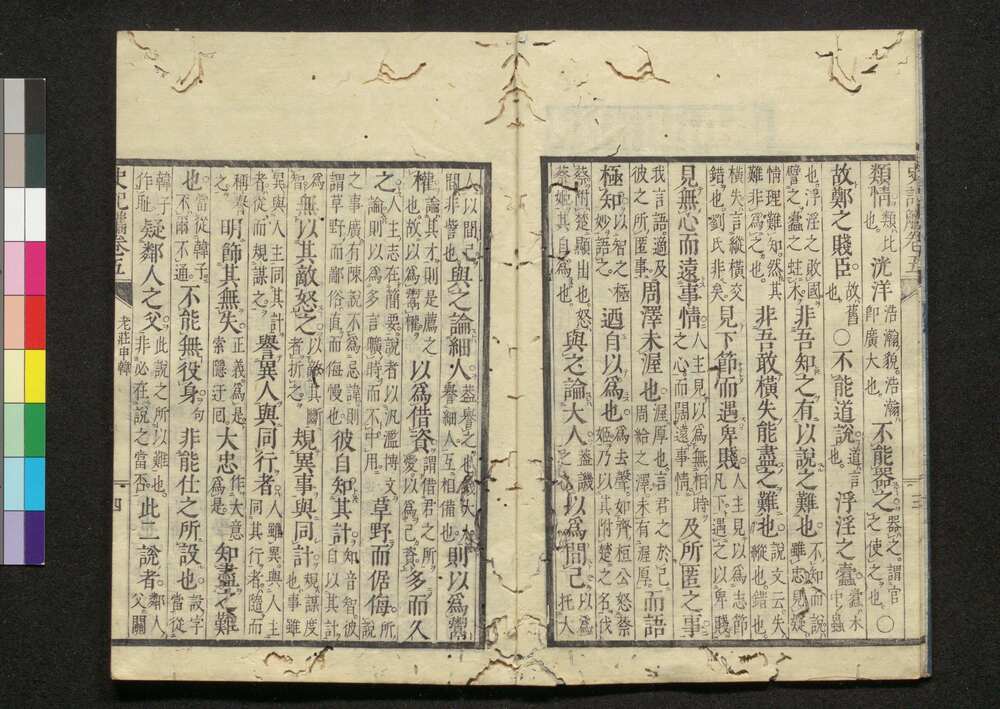 類情類比也。洸洋浩瀚貌。浩瀚即廣大也。不能器之器之。謂官之使之也。○
故鄭之賤臣故舊也。○不能道說道言也。浮淫之蠹蠹木中蟲
也。浮淫之敗國。譬之蠹之蛀木非吾知之有以說之難也不知而說。雖忠見疑。
情理難知。然其難非為之也。非吾敢橫失能盡之難也說文云失縱也。錯也。
橫失言縱橫交錯也劉氏非矣見下節而遇卑賤人主見以為志節凡下。遇之以卑賤
見無心而遠事情人主見以為無相時之心而闊遠事情及所匿之事
我言語適及彼之所匿事周澤未渥也渥厚也。言君之於己周給之澤未有渥厚而語
極知知以智之極妙語之。迺自以為也為去聲。如齊桓公怒蔡姬乃以其附楚之名伐
蔡與之論大人以為間己托大
人以間己與之論細人則以為鬻
權論其才則是薦之也。故以為鬻權以為借資謂借君之所愛以為己資多而久
之論則以多言曠時而不中用草野而倨侮說
之事廣有陳說不為忌諱則謂草野而鄙俗直而侮慢也彼自知其計知音智彼自以其計
為智無以其敵怒之規異事與同計規謀度也事雖
異與人主同其計者從而規謀之譽異人與同行者人雖異與人主同其行者隨而
稱奉之明飾其無失正義為是。索隱迂囘大忠大意知盡之難
也當從韓子不能無役身句非能仕之所設也設字當從
韓子作恥疑鄰人之父此說之所以難也。非必在說之當否此二說者鄰人父關
史記雋卷五
老莊申韓
四